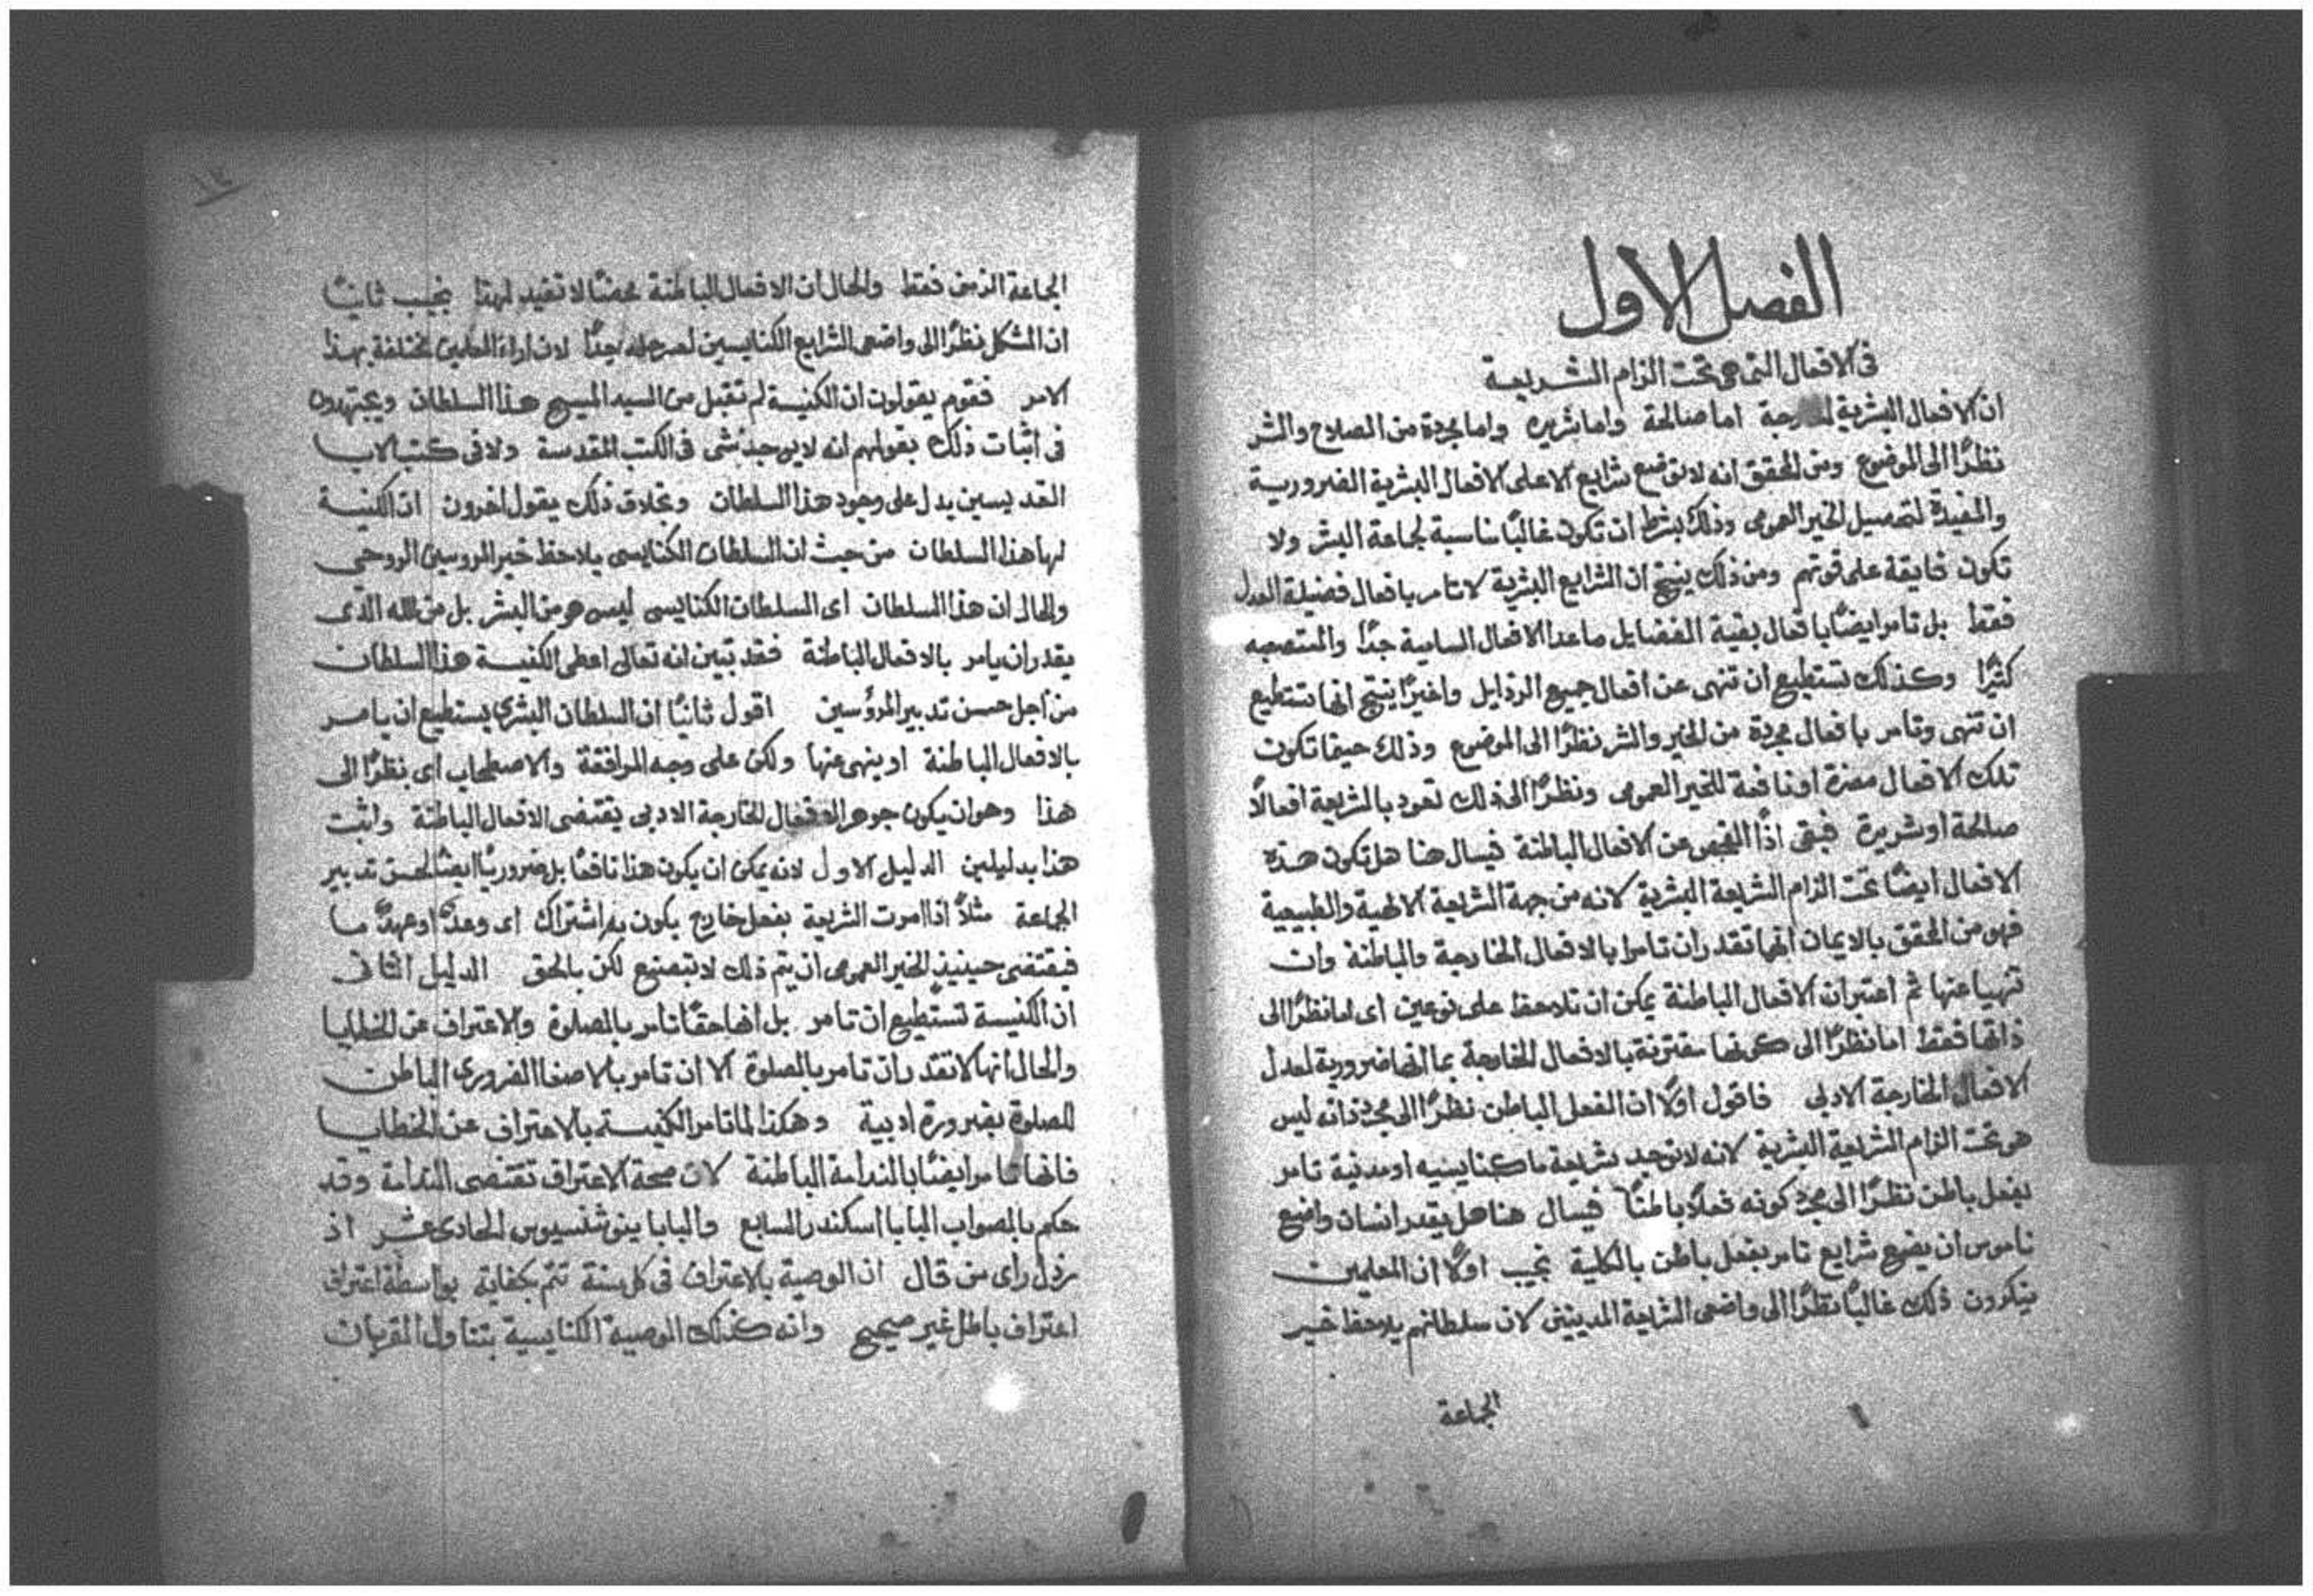 الفصل الاول
فى الافعال التى هى تحت الزام الشريعة
ان الافعال البشرية اما صالحة واما شريره واما مجردة من الصلاح والشر
نظرًا الى الموضوع ومن المحقق انه لا توضع شرايع الا على الافعال البشرية الضرورية
والمفيدة لتحصيل الخير العمومى وذلك بشرط ان تكون غالبًا مناسبة لجماعة البشر ولا
تكون فايقة على قوتهم ومن ذلك ينتج ان الشرايع البشرية لا تامر بافعال فضيلة العدل
فقط بل تامر ايضًا بافعال بقية الفضايل ما عدا الافعال السامية جدًا والمستصعبه
كثيرًا وكذلك تستطيع ان تنهى عن افعال جميع الرذايل واخيرًا ينتج انها تستطيع
ان تنهى وتامر بافعال مجردة من الخير والشر نظرًا الى الموضوع وذلك حينما تكون
تلك الافعال مضرة او نافعة للخير العمومى ونظرًا الى ذلك تعود بالشريعة افعالًا
صالحة او شريرة فيبقى اذًا الفحص عن الافعال الباطنة فيسال هنا هل تكون هذه
الافعال ايضًا تحت الزام الشريعة البشرية لانه من جهة الشريعة الالهية والطبيعية
فهو من المحقق بالايمان انها تقدر ان تامرا بالافعال الخارجة والباطنة وان
تنهيا عنها ثم اعتبر ان الافعال الباطنة يمكن ان تلاحظ على نوعين اى اما نظرًا الى
ذاتها فقط اما نظرًا الى كونها مقترنة بالافعال الخارجة بما انها ضرورية لعدل
الافعال الخارجة الادبى فاقول اولًا ان الفعل الباطن نظرًا الى مجرد ذاته ليس
هو تحت الزام الشريعة البشرية لانه لا توجد شريعة ما كنايسيه او مدنية تامر
بفعل باطن نظرًا الى مجرد كونه فعلًا باطنًا فيسال هنا هل يقدر انسان واضع
ناموس ان يضع شرايع تامر بفعل باطن بالكلية نجيب اولًا ان المعلمين
ينكرون ذلك غالبًا نظرًا الى واضعى الشريعة المدنيين لان سلطانهم يلاحظ خير
الجماعة
١٢
الجماعة الزمنى فقط والحال ان الافعال الباطنة محضًا لا تفيد لهذا نجيب ثانيًا
ان المشكل نظرًا الى واضعى الشرايع الكنايسيين جدًا لان اراء المعلمين مختلفة بهذا
الامر فقوم يقولون ان الكنيسة لم تقبل من السيد المسيح هذا السلطان ويجتهدون
فى اثبات ذلك بقولهم انه لا يوجد شى فى الكتب المقدسة ولا فى كتب الابا
القديسين يدل على وجود هذا السلطان وبخلاف ذلك يقول اخرون ان الكنيسة
لها هذا السلطان من حيث ان السلطان الكنايسى يلاحظ خير المروسين الروحى
والحال ان هذا السلطان اى السلطان الكنايسى ليس هو من البشر بل من الله الذى
يقدر ان يامر بالافعال الباطنة فقد تبين انه تعالى اعطى الكنيسة هذا السلطان
من اجل حسن تدبير المرؤسين اقول ثانيًا ان السلطان البشرى يستطيع ان يامر
بالافعال الباطنة او ينهى عنها ولكن على وجه المرافقة والاصطحاب اى نظرًا الى
هذا وهو ان يكون جوهر الافعال الخارجة الادبى يقتضى الافعال الباطنة واثبت
هذا بدليلين الدليل الاول لانه يمكن ان يكون هذا نافعًا بل ضروريًا ايضًا لحسن تدبير
الجماعة مثلًا اذا امرت الشريعة بفعل خارج يكون به اشتراك اى وعدًا او عهدًا ما
فيقتضى حينيذ الخير العمومى ان يتم ذلك لا بتصنع لكن بالحق الدليل الثانى
ان الكنيسة تستطيع ان تامر بل انها حقًا تامر بالصلوة والاعتراف عن الخطايا
والحال انها لا تقدر ان تامر بالصلوة الا ان تامر بالاصغا الضرورى الباطن
للصلوة بضرورة ادبية وهكذا لما تامر الكنيسة بالاعتراف عن الخطايا
فانها تامر ايضًا بالندامة الباطنة لان صحة الاعتراف تقتضى الندامة وقد
حكم بالصواب البابا اسكندر السابع والبابا ينوشنسيوس الحادى عشر اذ
رذل راى من قال ان الوصية بالاعتراف فى كل سنة تتم بكفاية بواسطة اعتراف
اعتراف باطل غير صحيح وانه كذلك الوصية الكنايسية بتناول القربان